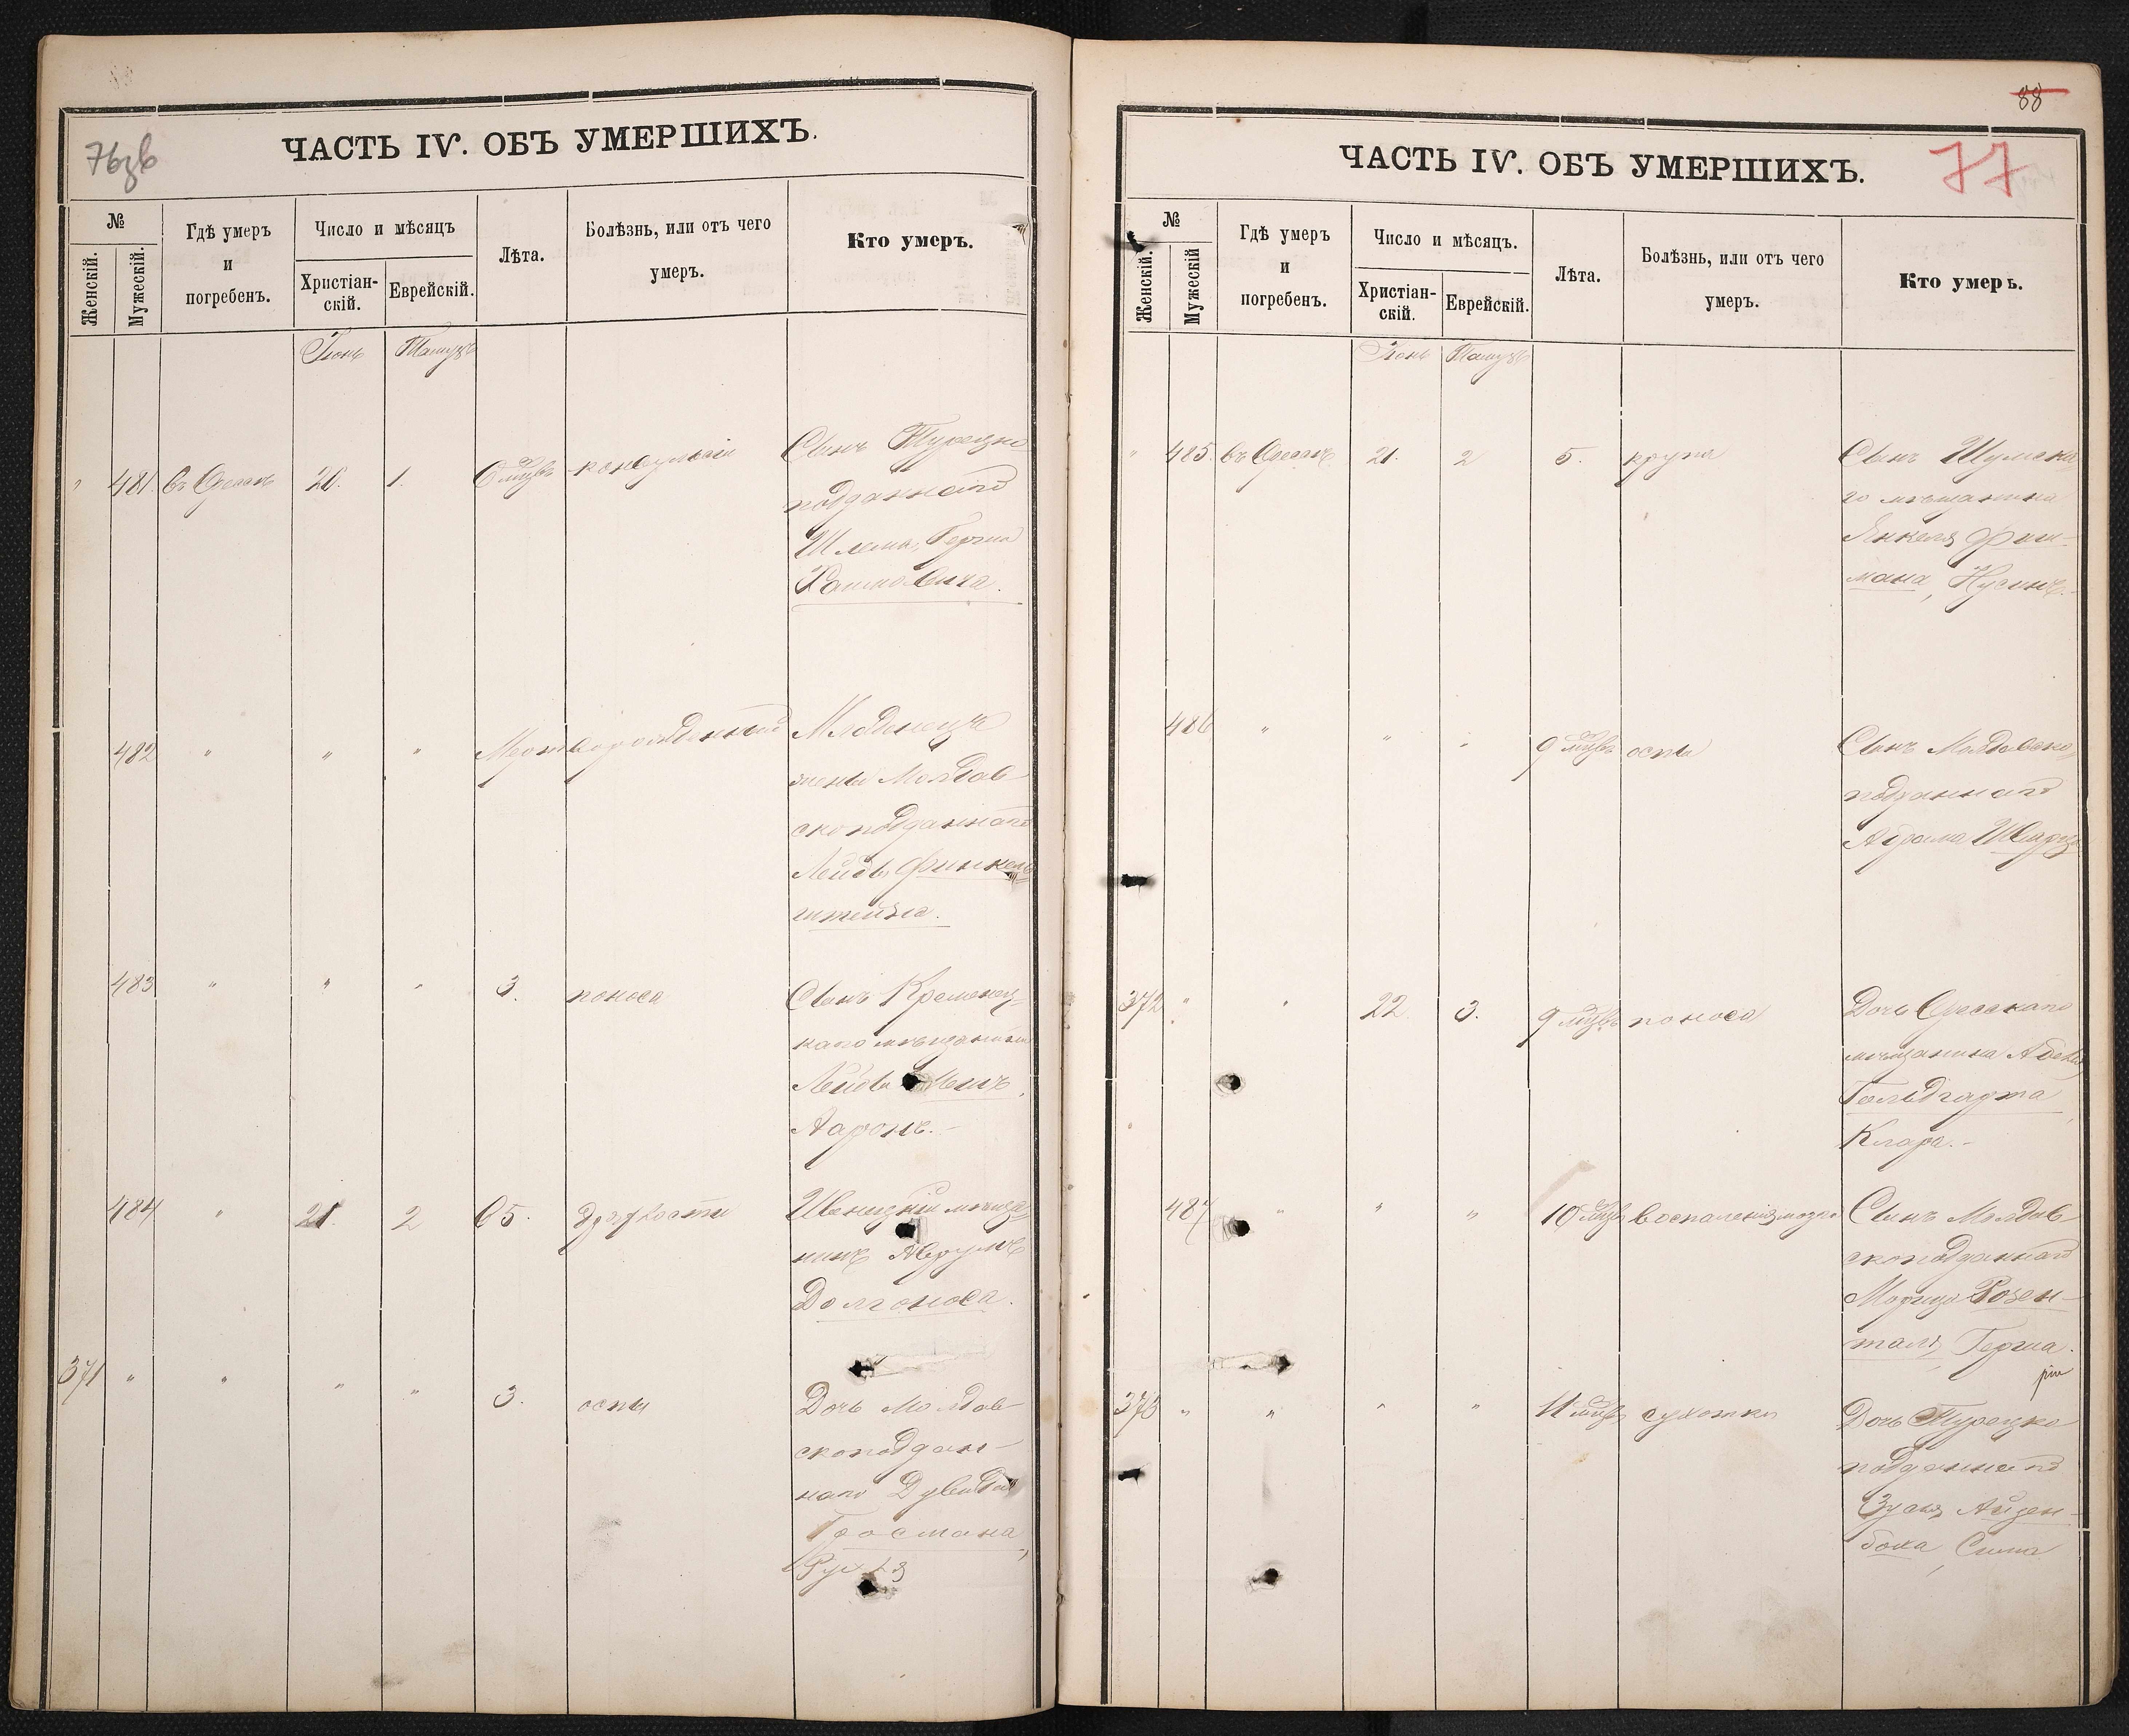 76об
ЧАСТЬ IV. ОБЪ УМЕРШИХЪ.
№
Женскій.
Мужескій.
Гдѣ умеръ
и
погребенъ.
Число и мѣсяцъ
Христіан-
скій.
Еврейскій.
Лѣта.
Болѣзнь, или отъ чего
умеръ.
Кто умеръ.
Іюнь Тамузъ
" 481. въ Одессѣ 20. 1. конвульсіи
Сынъ Турецко
подданнаго
Шлема, Герша
482 " " " Мертворожденный
Младенецъ
жены Молдав-
скоподданнаго
Лейбы Финкель=
штейна.
483 " " " 3. поноса
Сынъ Кременец=
каго мѣщанина
Лейбы
Ааронъ.-
484 " 21. 2 65. дряхлости
мѣща=
нинъ Аврумъ
Долгоноса.
371 " " " " 3. оспы
Дочь Молдав-
скоподдан-
наго Дувида
Гросмана,
88
77
ЧАСТЬ IV. ОБЪ УМЕРШИХЪ.
№
Женскій.
Мужескій
Гдѣ умеръ
и
погребенъ.
Число и мѣсяцъ.
Христіан-
скій.
Еврейскій.
Лѣта.
Болѣзнь, или отъ чего
умеръ.
Кто умеръ.
Іюнь Тамузъ
" 485. въ Одессѣ 21. 2 5. крупа
Сынъ Шумска
го мѣщанина
Янкеля Фиш-
мана, Нусинъ.-
486 " " " 9 мцвъ оспы
Сынъ Молдавско=
подданнаго
Абрама Шварца
372 " " 22. 3. 9 мцвъ поноса
Дочь Одесскаго
мѣщанина Абеля
Гольдгарта,
Клара.-
487 " " " 10 мцвъ воспаленія мозга
Сынъ Молдав-
скоподданнаго
Морица Розен-
таля, Герша.
373 " " " " 11 мцвъ сухотки
Дочь Турецко
подданнаго
Зуся Айзен-
бока, Сима